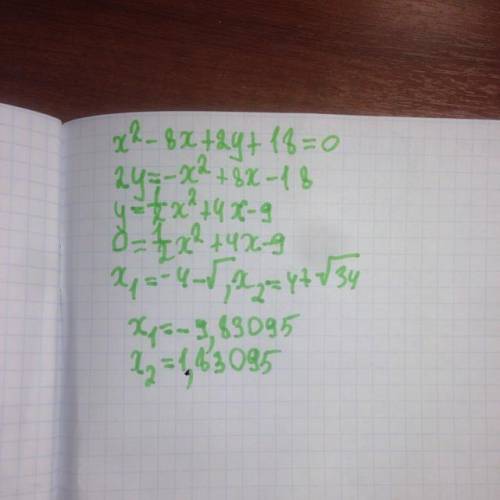 x² - 8x + 2y + 18 = 0
2y = -x² + 8x - 18
y = 1/2 x² + 4x - 9
0 = 1/2 x² + 4x - 9
x₁ = -4 - √, x₂ = 4 + √34
x₁ = -9,83095
x₂ = 1,83095